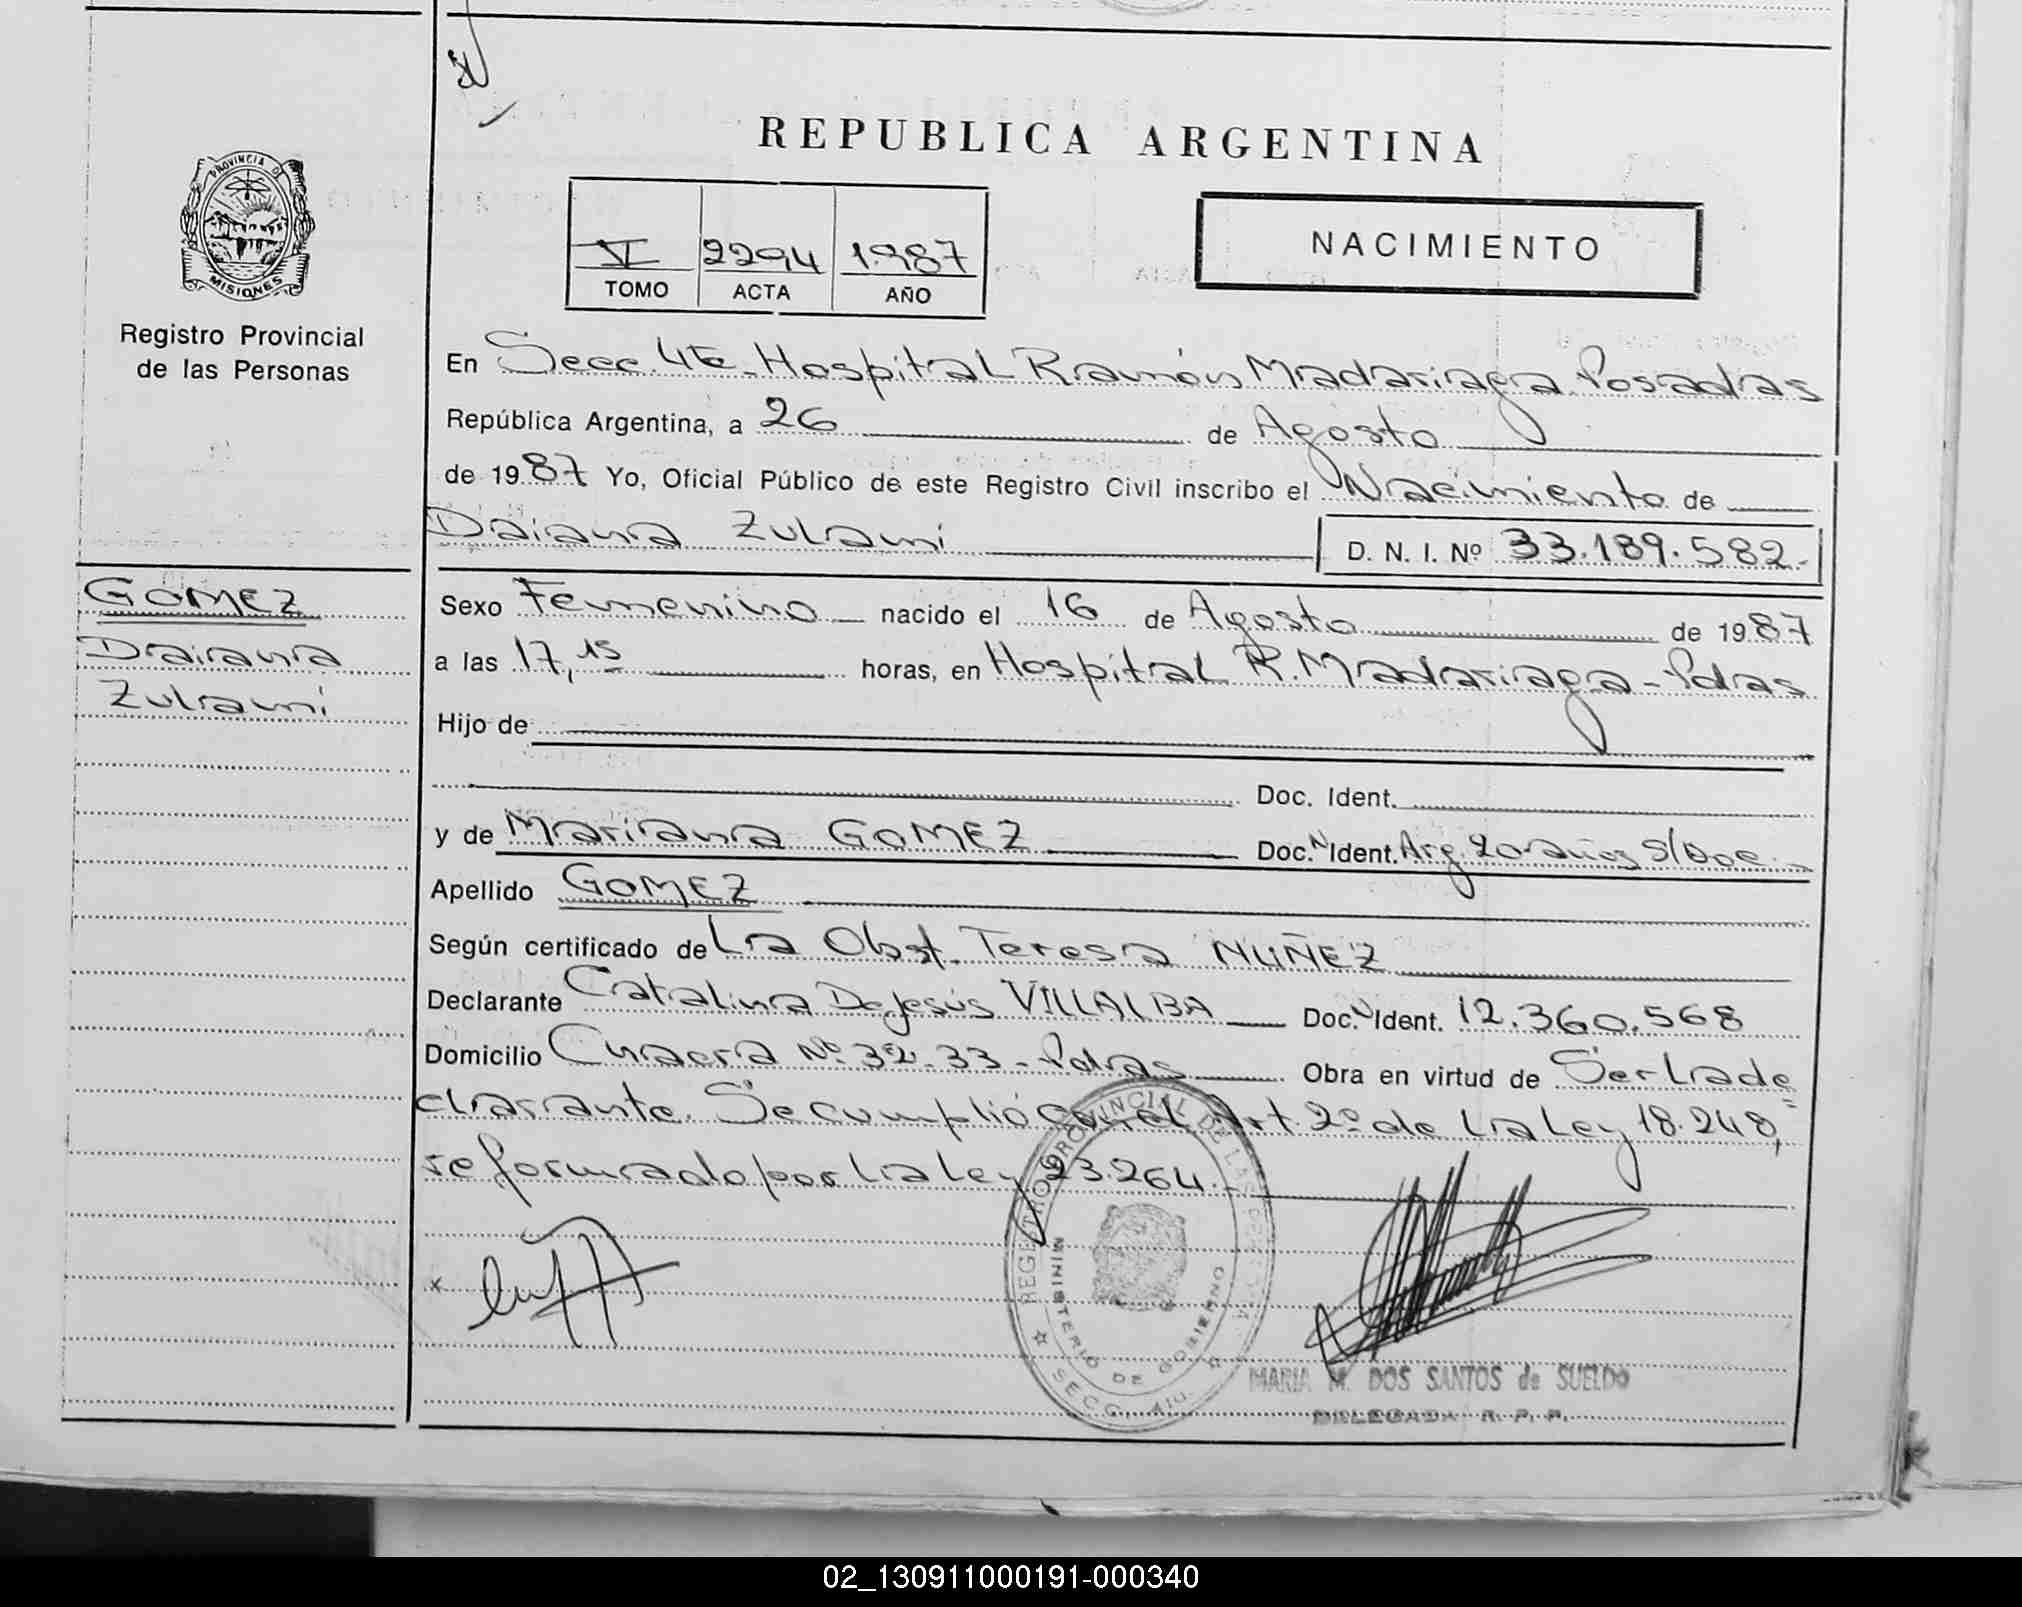 REPUBLICA ARGENTINA
PROVINCIA D
MISIONES
Registro Provincial
de las Personas
V 2294 1.987
TOMO ACTA AÑO
NACIMIENTO
En Secc. 4ta. Hospital Ramón Madariaga Posadas
República Argentina, a 26 de Agosto
de 1987 Yo, Oficial Público de este Registro Civil inscribo el Nacimiento de
Daiana Zulami
D. N. I. Nº 33.189.582.-
GOMEZ
Daiana
Zulami
Sexo Femenino nacido el 16 de Agosto de 1987
a las 17,15 horas, en Hospital R. Madariaga - Pdas
Hijo de
Doc. Ident.
y de Mariana GOMEZ Doc. N Ident. Arg. 20 años S/Doc.-
Apellido GOMEZ
Según certificado de La Obst. Teresa NUÑEZ
Declarante Catalina De Jesús VILLALBA Doc. N Ident. 12.360.568
Domicilio Chacra Nº 32-33 - Pdas Obra en virtud de Ser la de=
clarante. Se cumplió con el Art. 2º de la Ley 18.248,
reformado por la Ley 23.264.-
REGISTRO PROVINCIAL DE LAS PERSONAS
MINISTERIO DE GOBIERNO
SECC. 4TA.
x
MARIA M. DOS SANTOS de SUELDO
DELEGADA R. P. P.
02_130911000191-000340